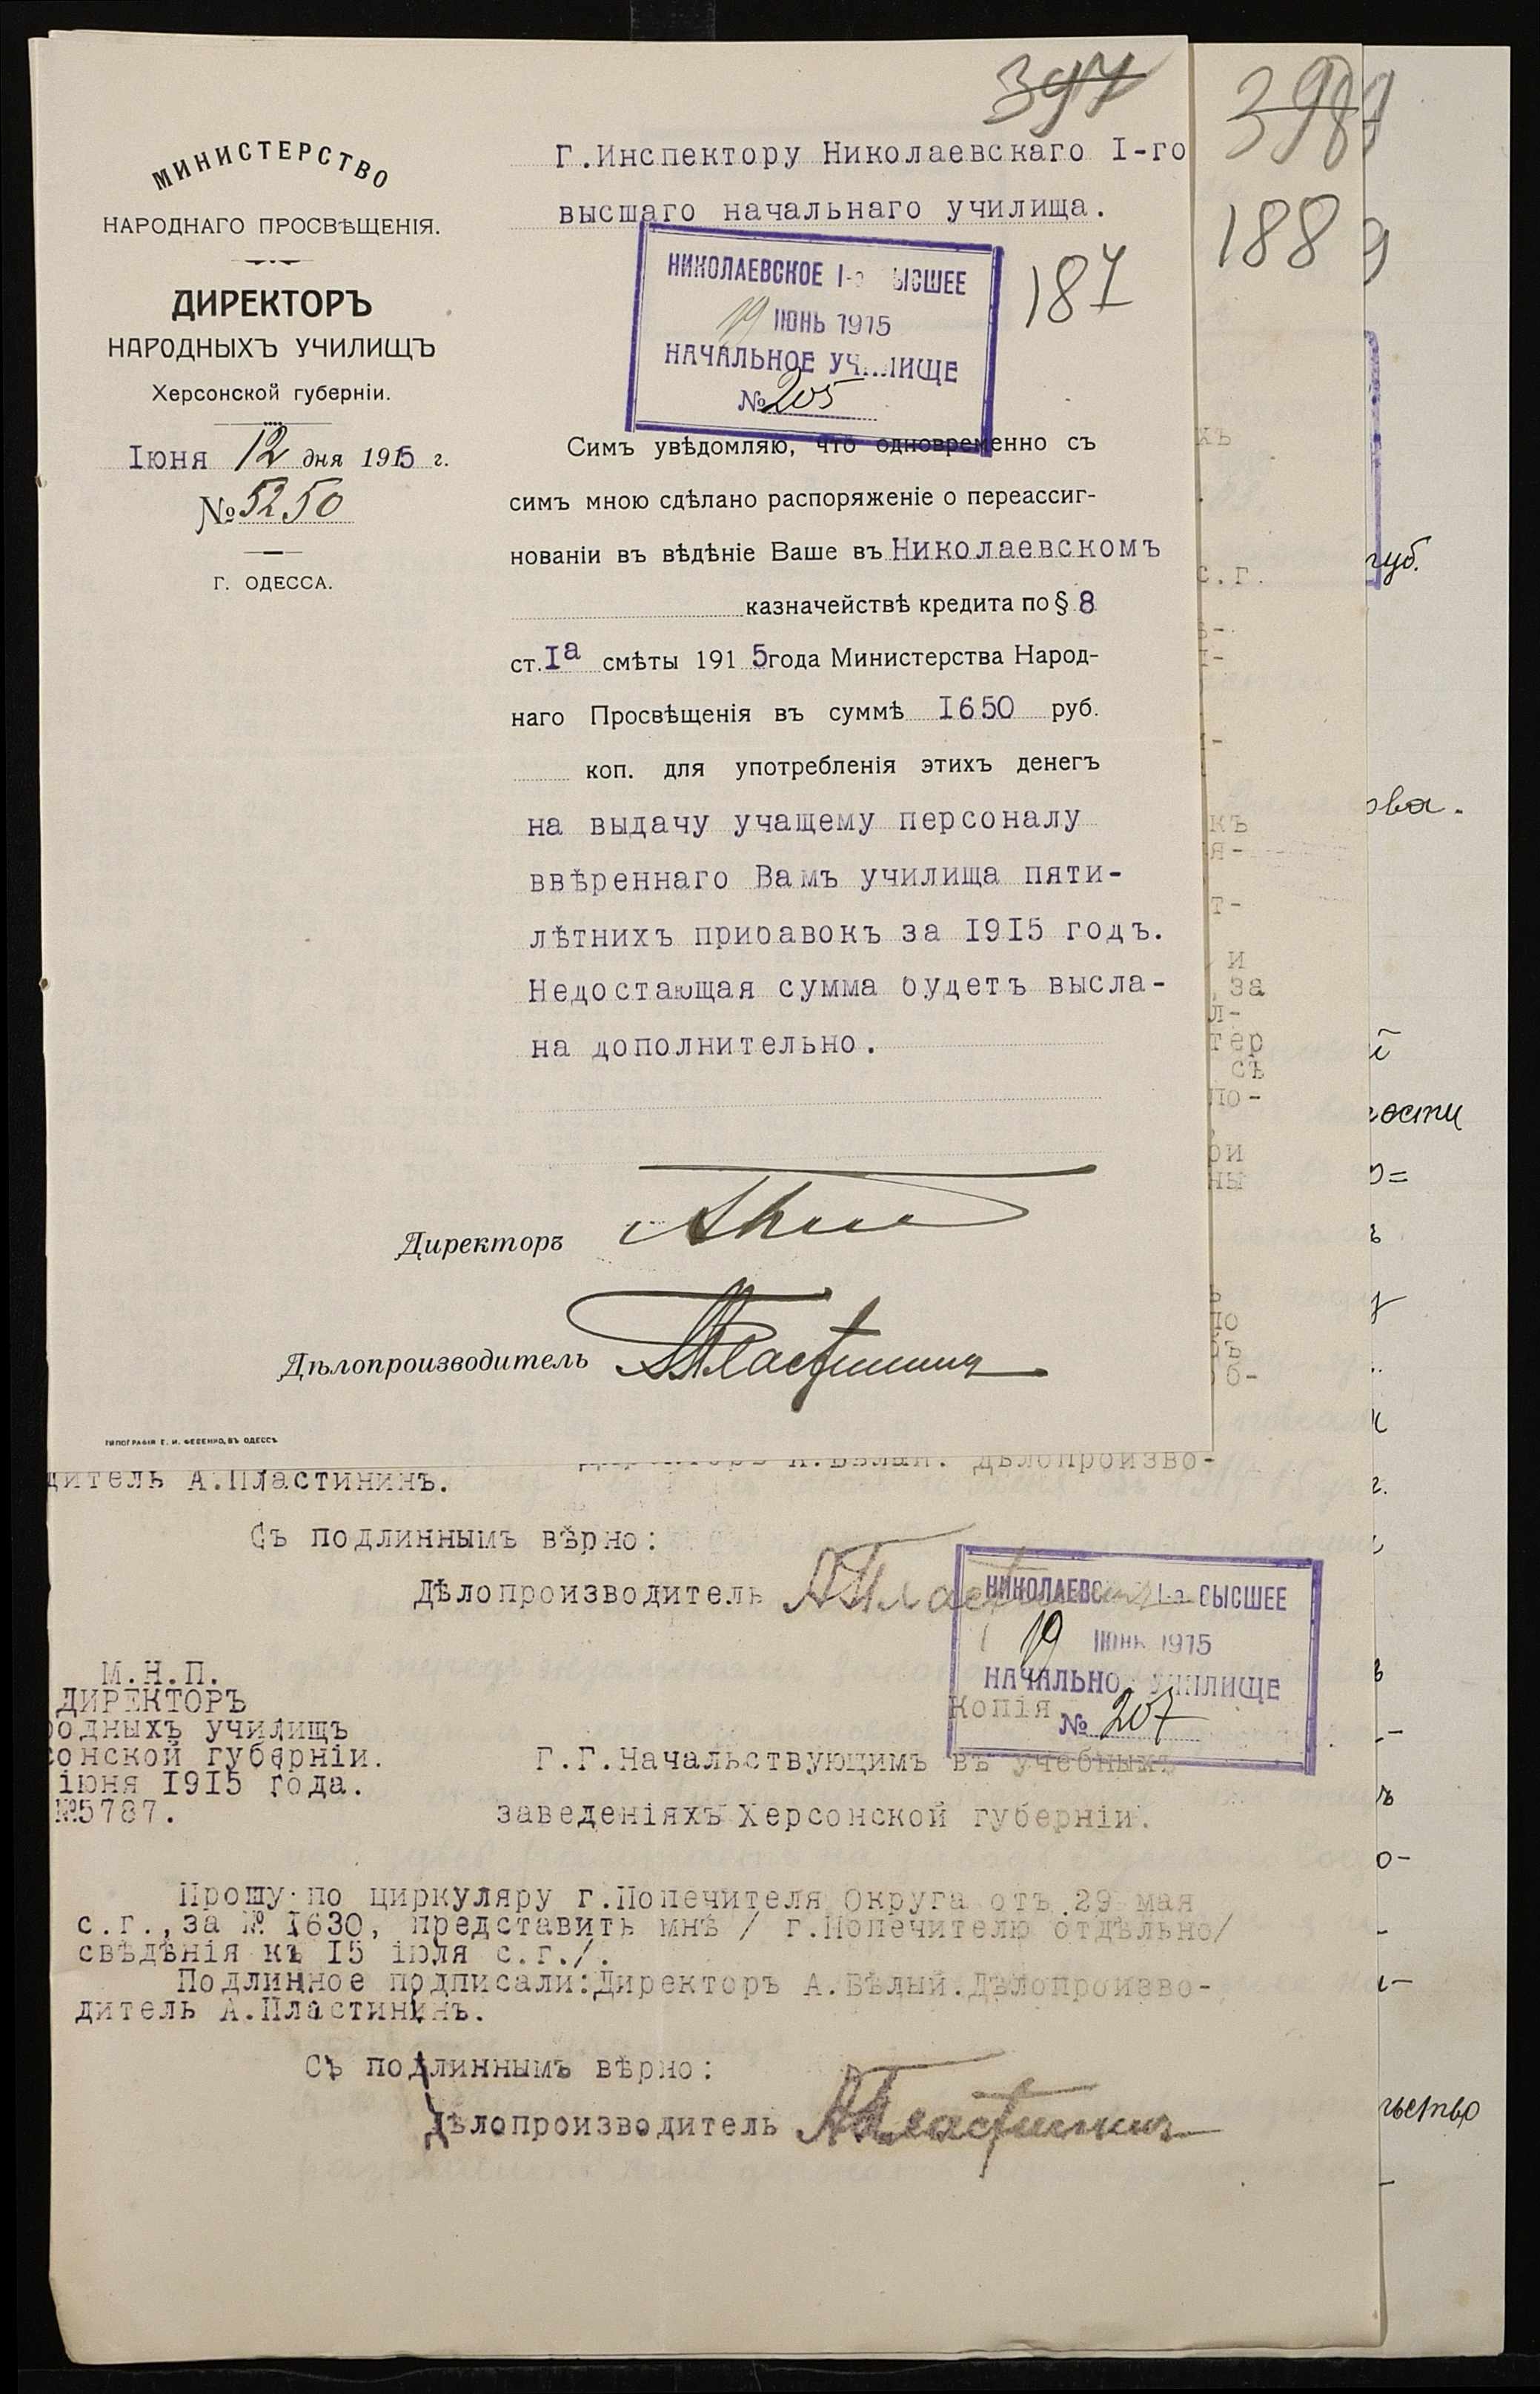 397
МИНИСТЕРСТВО
НАРОДНАГО ПРОСВѢЩЕНІЯ.
ДИРЕКТОРЪ
НАРОДНЫХЪ УЧИЛИЩЪ
Херсонской губерніи.
Іюня 12 дня 1915 г.
№ 5250
Г. ОДЕССА.
Г.Инспектору Николаевскаго I-го
высшаго начальнаго училища.
НИКОЛАЕВСКОЕ I-е ВЫСШЕЕ
19 ІЮНЬ 1915
НАЧАЛЬНОЕ УЧИЛИЩЕ
№ 205
187
Симъ увѣдомляю, что одновременно съ
симъ мною сдѣлано распоряженіе о переассиг-
нованіи въ вѣдѣніе Ваше въ Николаевскомъ
казначействѣ кредита по § 8
ст. Iа смѣты 1915 года Министерства Народ-
наго Просвѣщенія въ суммѣ 1650 руб.
коп. для употребленія этихъ денегъ
на выдачу учащему персоналу
ввѣреннаго Вамъ училища пяти-
лѣтнихъ прибавокъ за 1915 годъ.
Недостающая сумма будетъ высла-
на дополнительно.
Директоръ
Дѣлопроизводитель АПластининъ
ТИПОГРАФІЯ Е. И. ФЕСЕНКО, ВЪ ОДЕССѢ
188
хъ
с.г.
къ
я-
т-
и
за
л-
тер
съ
по-
ри
ны
по
б-
губ.
ова.
ости
о=
г.
о-
ьство
Дѣлопроизво-
дитель А.Пластининъ.
Съ подлиннымъ вѣрно:
Дѣлопроизводитель АПластининъ
НИКОЛАЕВСКОЕ I-е ВЫСШЕЕ
19 ІЮНЬ 1915
НАЧАЛЬНОЕ УЧИЛИЩЕ
№ 207
Копія
М.Н.П.
ДИРЕКТОРЪ
родныхъ училищъ
сонской губерніи.
іюня 1915 года.
№5787.
Г.Г.Начальствующимъ въ учебныхъ
заведеніяхъ Херсонской губерніи.
Прошу по циркуляру г.Попечителя Округа отъ 29 мая
с.г., за № 1630, представить мнѣ / г.Попечителю отдѣльно/
свѣдѣнія къ 15 іюля с.г./.
Подлинное подписали:Директоръ А.Бѣлый.Дѣлопроизво-
дитель А.Пластининъ.
Съ подлиннымъ вѣрно:
Дѣлопроизводитель АПластининъ